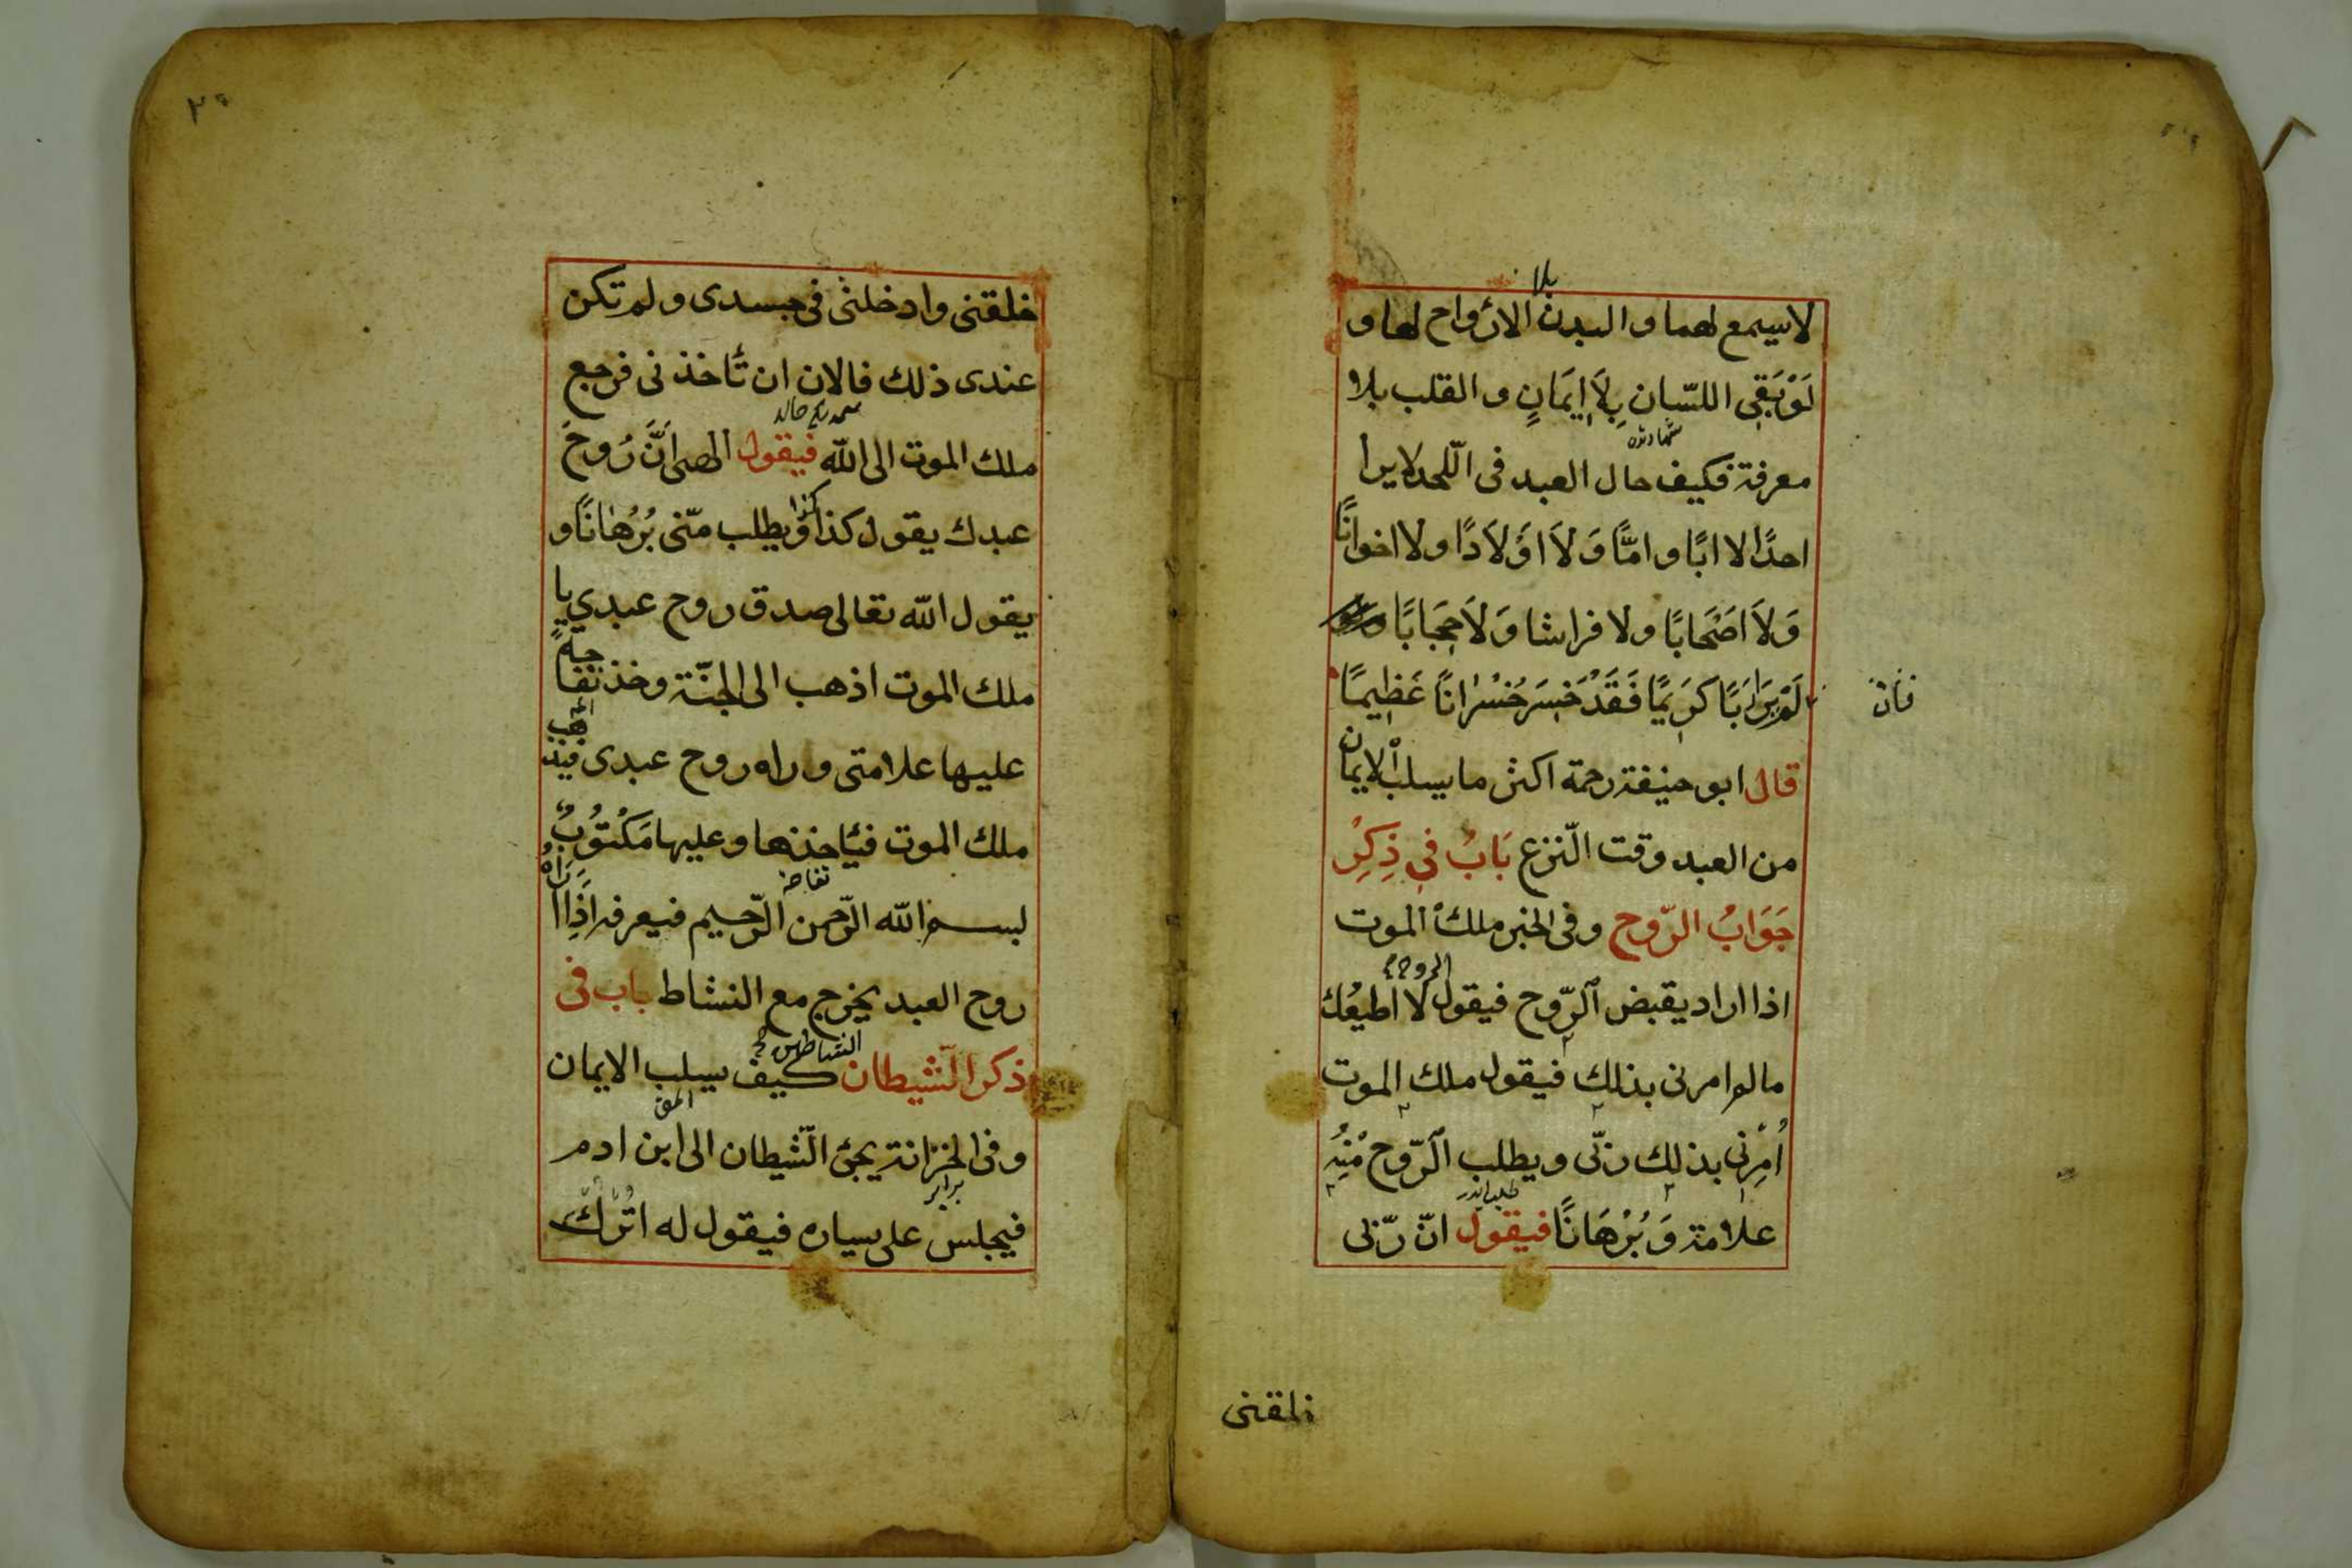 لا سيمع لهما و البدن الارواح لها و
بلا
لَوْ بَقِى اللسّان بِلَا اِيمَانٍ و القلب بلا
معرفة فكيف حال العبد فى اللّحد لا يرا
احدًا لا ابًا و امًّا وَ لَا اَوْلَادًا و لا اخوانًا
وَ لَا اَصْحَابًا و لا فراشا وَ لَا حِجَابًا
لَمْ يَرَ رَبًّا كَرِيمًا فَقَدْ خَسِرَ خُسْرَانًا عَظِيمًا
فان
قال ابو حنيفة رحمة اكثر ما يسلب الايمان
من العبد وقت النّزع بَابُ فِى ذِكْرِ
جَوَابُ الرّوح و فى الخبر ملك الموت
اذا اراد يقبض الرّوح فيقول لا اطيعُك
الروح
مالم امرنى بذلك فيقول ملك الموت
اُمِرْنِى بذلك ربّى و يطلب الرّوح مِنْهُ
علامة وَ بُرْهَانًا فيقول انّ ربّى
خلقنى
٢٠
خلقنى و ادخلنى فى جسدى و لم تكن
عندى ذلك فالان ان تأخذنى فرجع
ملك الموت الى الله فيقول الهى اَنَّ رُوحَ
عبدك يقول كذا وَ يطلب منّى بُرْهَانًا و
كذا
يقول الله تعالى صدق روح عبدي يا
ملك الموت اذهب الى الجنّة و خذ تفا
حة
عليها علامتى و راه روح عبدى فيذ
هب
ملك الموت فيأخذها و عليها مَكْتُوبٌ
بسم الله الرّحمن الرّحيم فيعرفه اَذِا
رَاهُ
تفاحة
روح العبد يخرج مع النشاط باب فى
ذكر الشّيطان كيف يسلب الايمان
و فى الخزانة يجئ الشّيطان الى ابن ادم
فيجلس على يساره فيقول له اُتْرُكْ
برابر